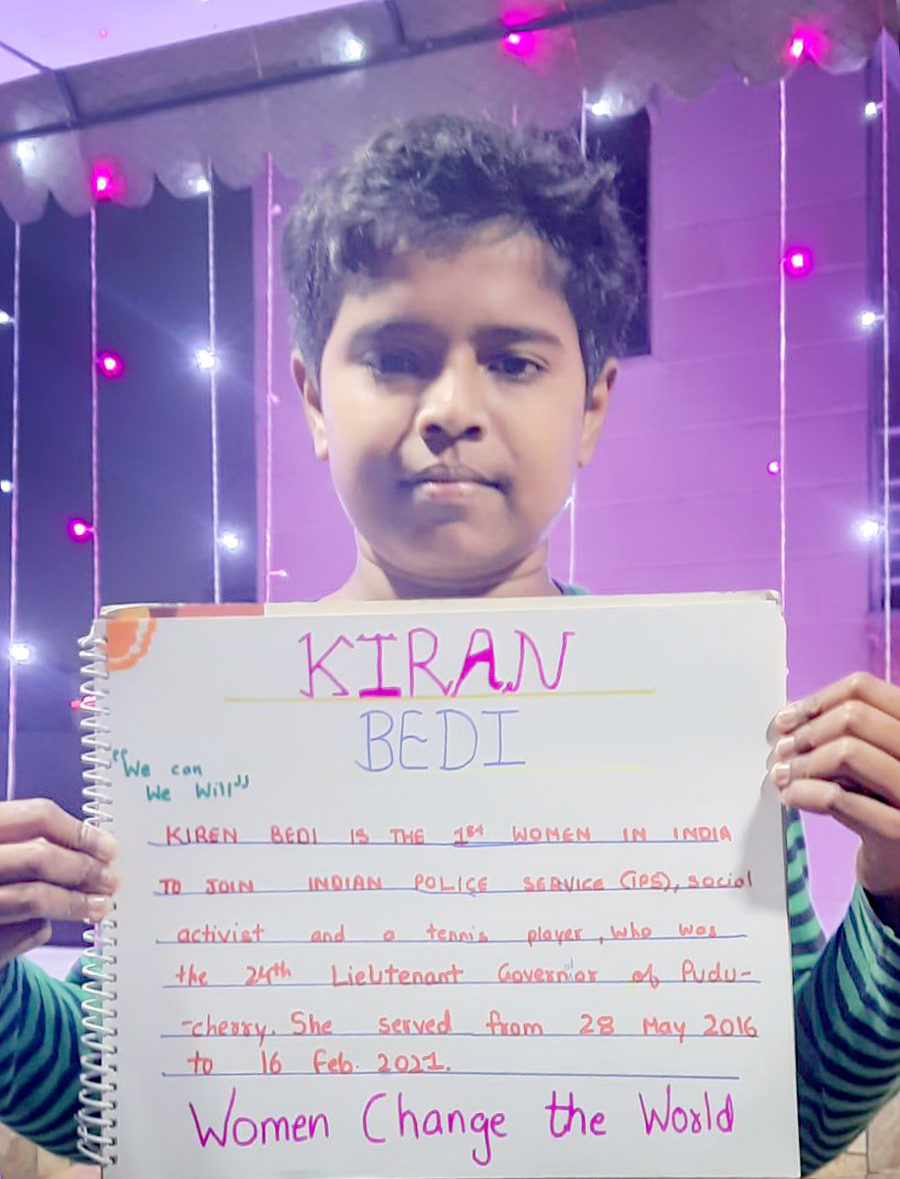 KIRAN
BEDI
"We can
We Will"
KIREN BEDI IS THE 1st WOMEN IN INDIA
TO JOIN INDIAN POLICE SERVICE (IPS), social
activist and a tennis player, who was
the 24th Lieutenant Governor of Pudu-
-cherry. She served from 28 May 2016
to 16 Feb. 2021.
Women Change the World